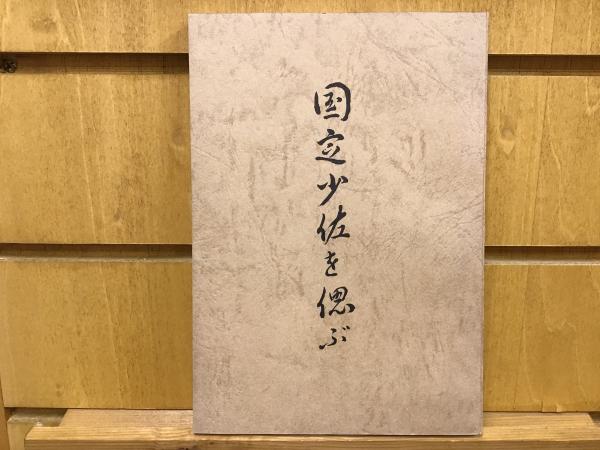 国定少佐を偲ぶ